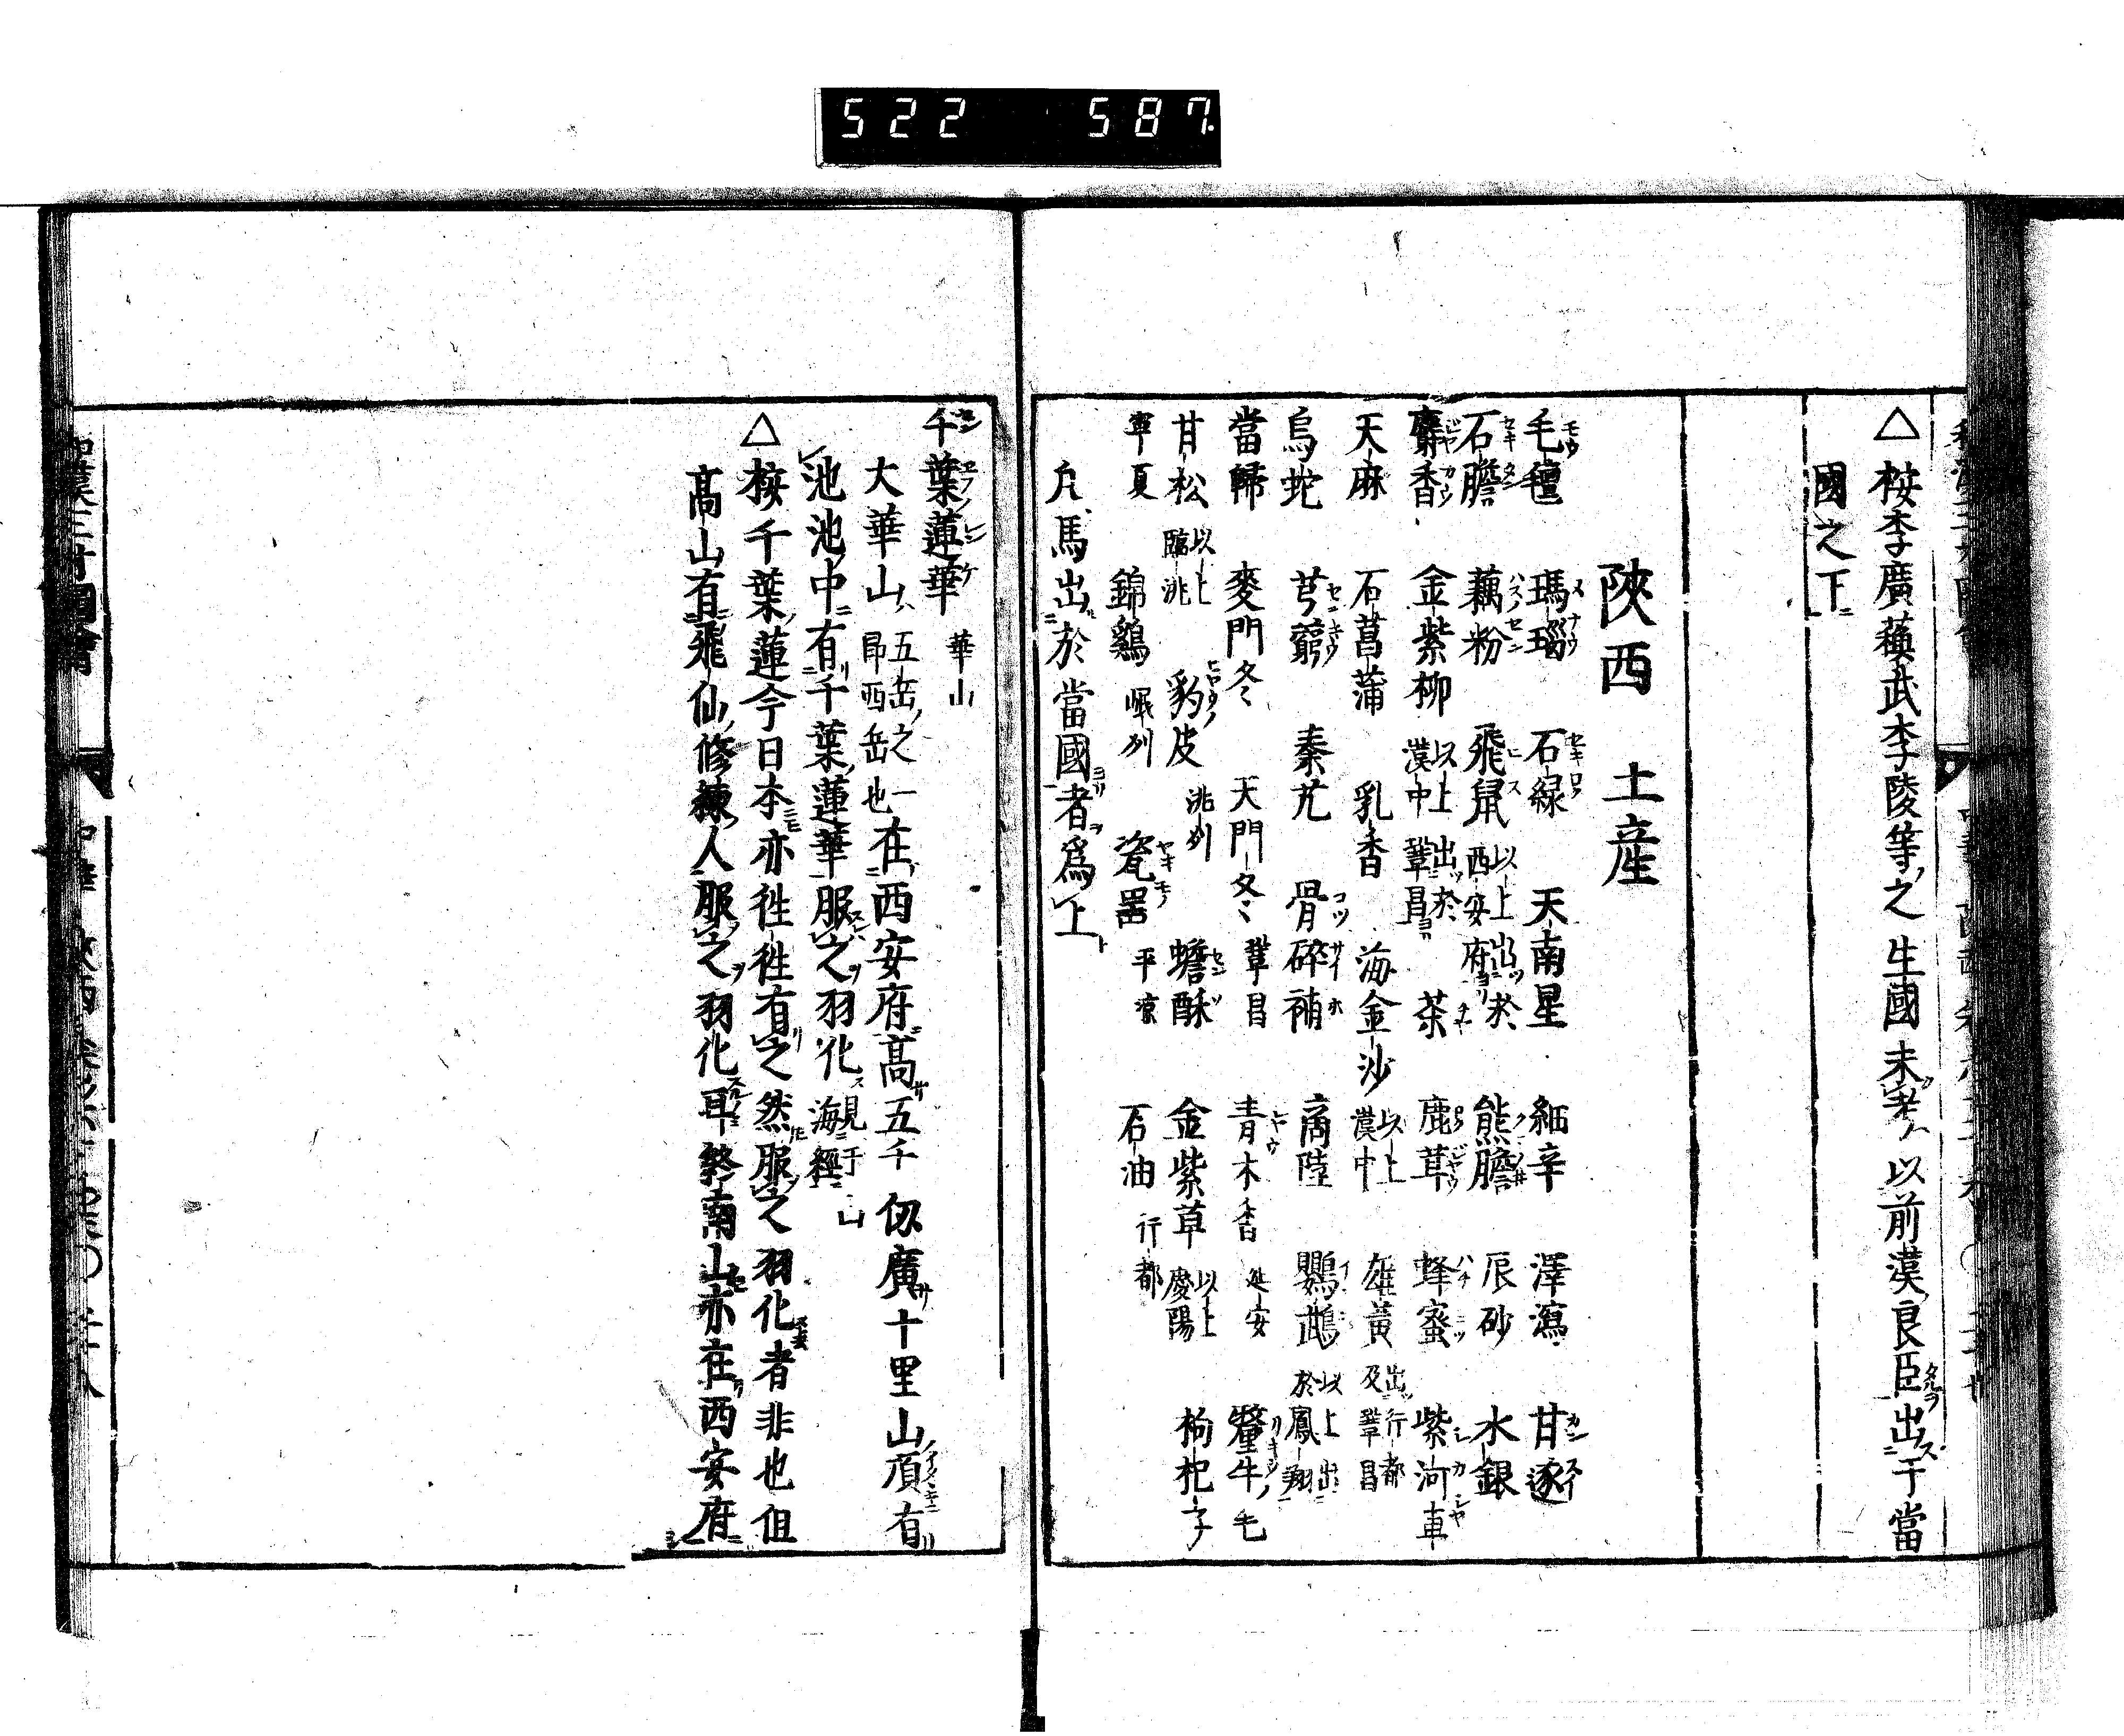 522 587
△按李廣蘓武李陵等之生國未考以前漢良臣出于當
國之下
陜西 土産
毛氊 瑪瑙 石緑 天南星 細辛 澤瀉 甘遂
石膽 藕粉 飛鼠 以上出於西安府 熊膽 辰砂 水銀
麝香 金紫柳 以上漢中 出於鞏昌 茶 鹿茸 蜂蜜 紫河車
天麻 石菖蒲 乳香 海金沙 以上漢中 雄黃 出行都及鞏昌
烏蛇 芎藭 秦艽 骨碎補 商陸 鸚鵡 以上出於鳳翔
當歸 麥門冬 天門冬 鞏昌 青木香 延安 犛牛毛
甘松 以上臨洮 豹皮 洮州 蟾酥 金紫草 以上慶陽 枸杞子
寧夏 錦鷄 岷州 瓷噐 平凉 石油 行都
凡馬出於當國者爲上
千葉蓮華 華山
大華山 五岳之一昂西岳也 在西安府髙五千仭廣十里山頂有
池池中有千葉蓮華服之羽化 見于山海經
△按千葉蓮今日本亦徃徃有之然服之羽化者非也但
髙山有飛仙修練人服之羽化耳終南山亦在西安府